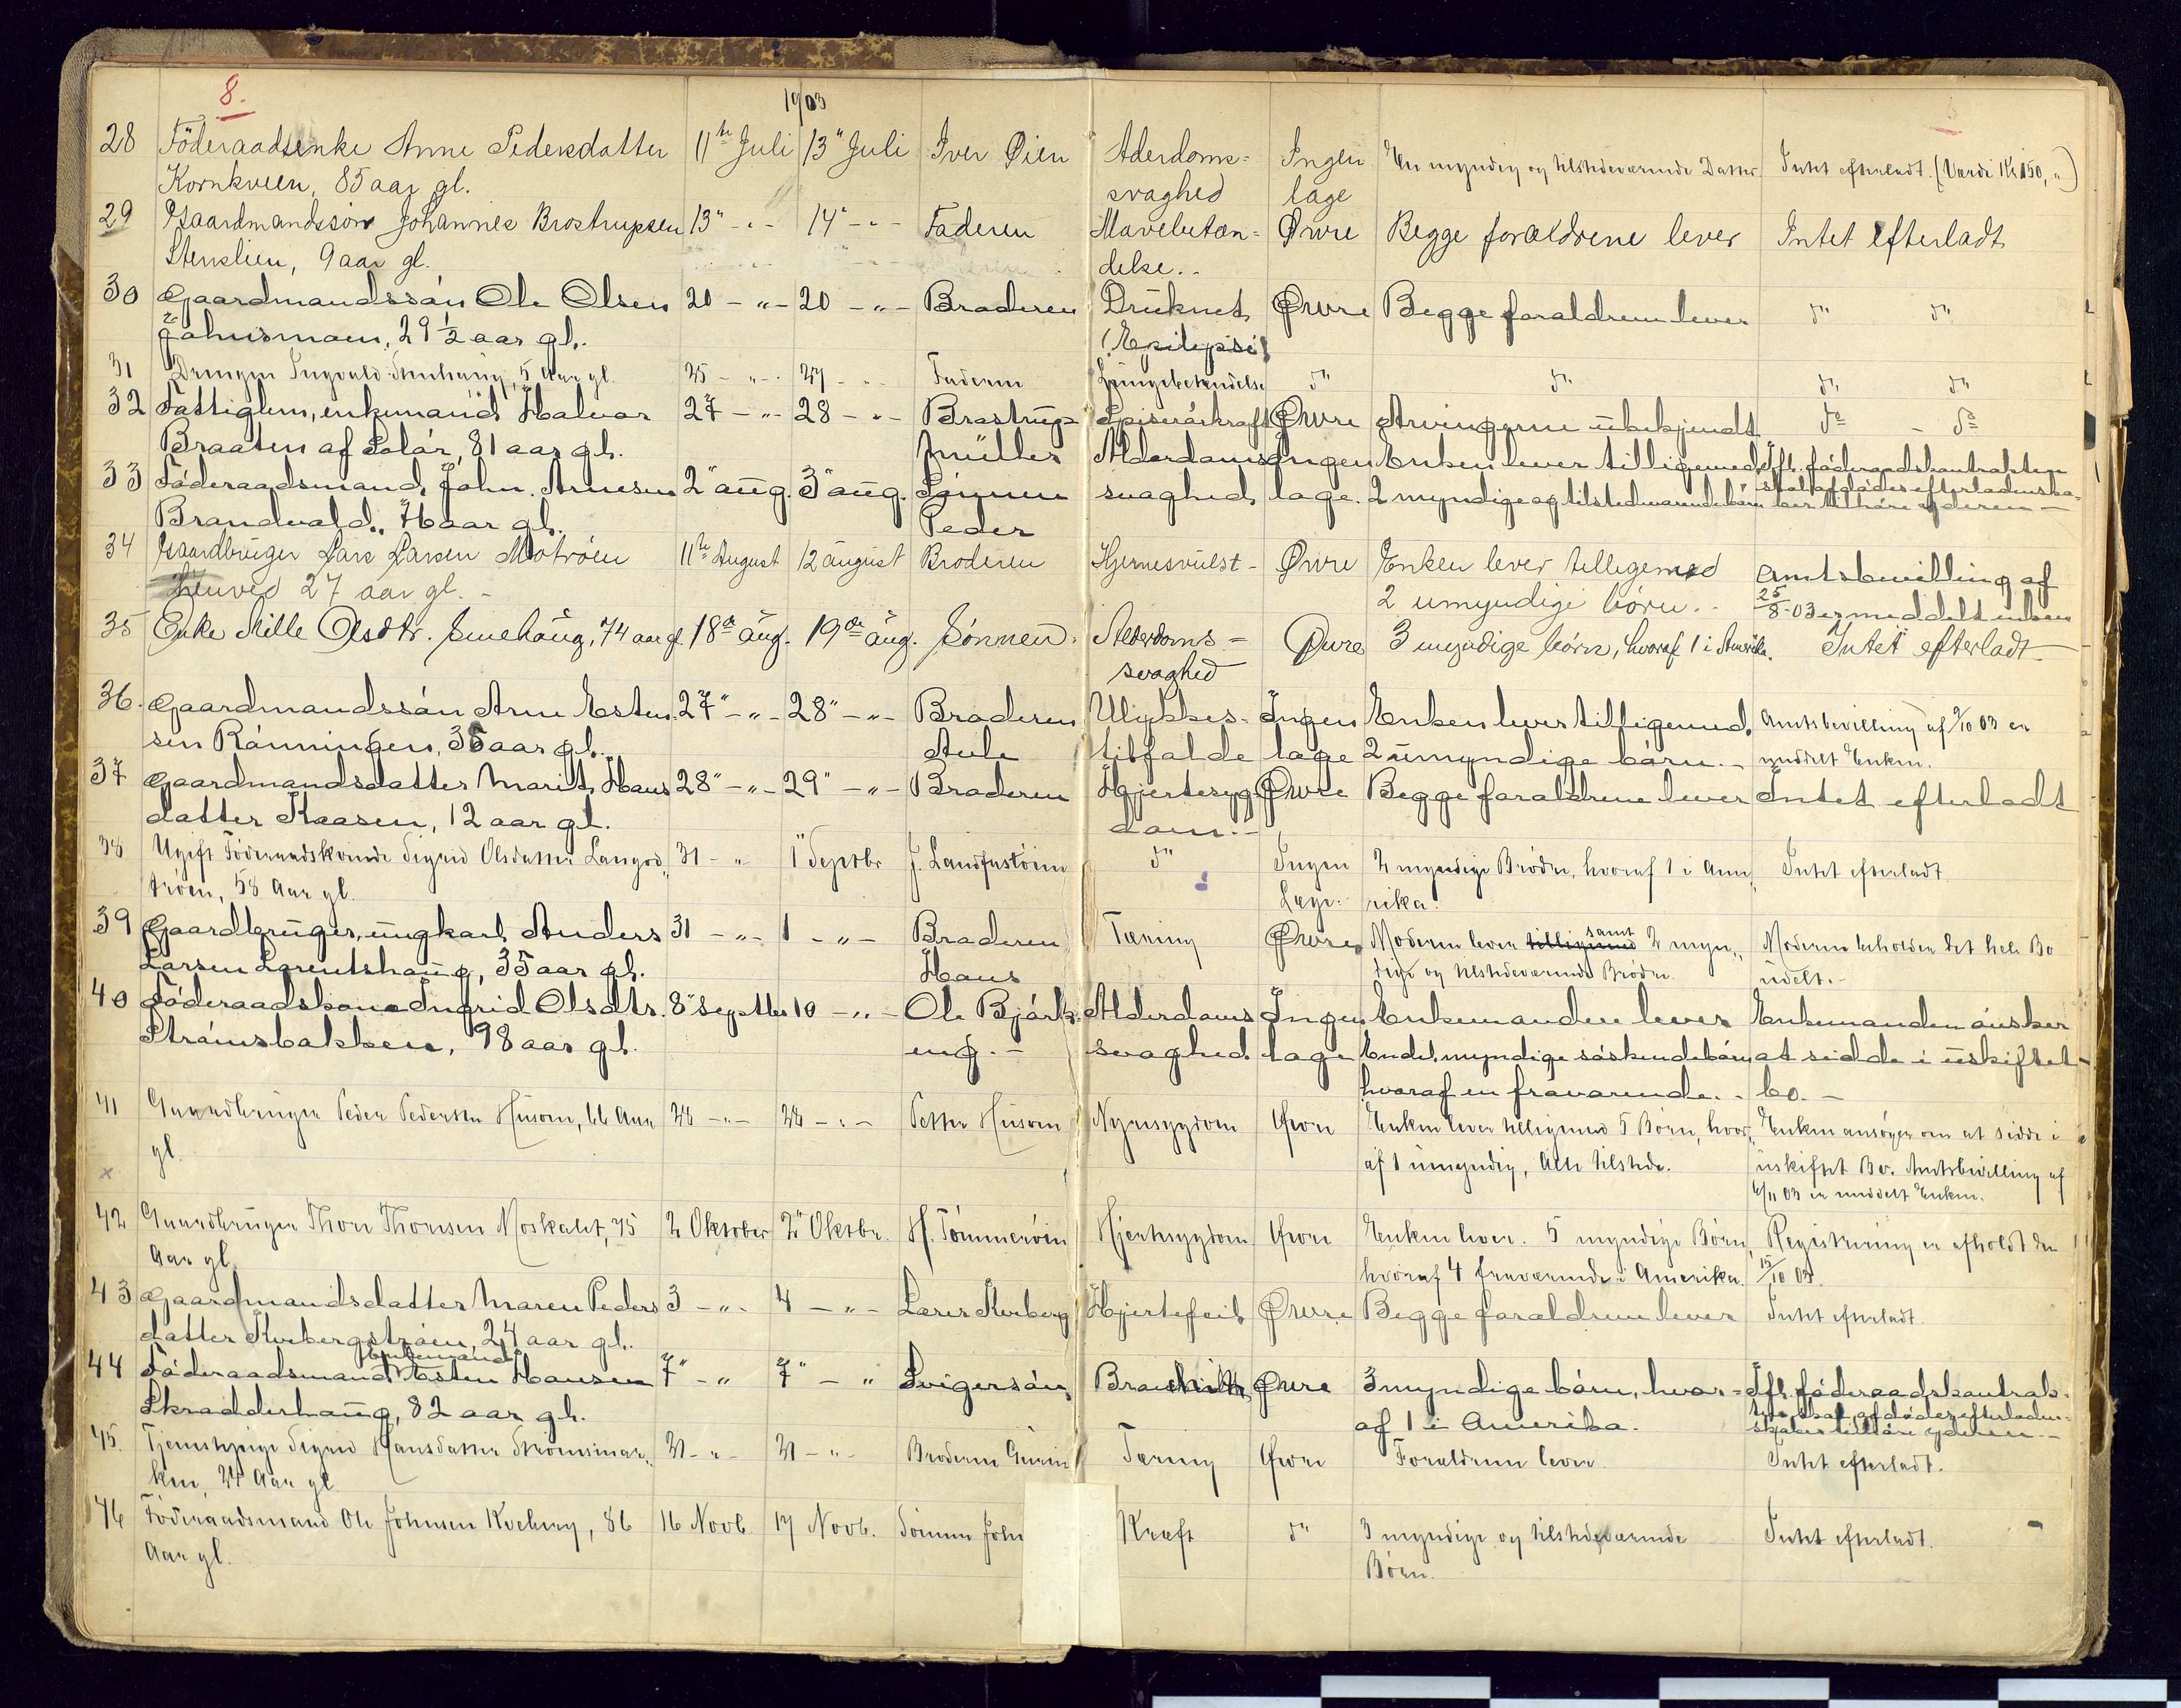 8.
1903
28 Föderaadsenke Anne Pedersdatter 11te Juli 13" Juli Iver Øien Aderdoms= Ingen En myndig og tilstedeværende Datter. Intet efterladt. (Værdi Kr 150,")
Kornkveen, 85 aar gl. svaghed læge
29 Gaardmandssön Johannes Brostrupsen 13" -"- 14" -"- Faderen Mavebetæn= Øvre Begge forældrene lever Intet efterladt
Stenslien, 9 aar gl. delse..
30 Gaardmandssön Ole Olsen 20 -"- 20 -"- Broderen Druknet Øvre Begge forældrene lever do do
Johnsmoen, 29 1/2 aar gl. (Epilepsi)
31 Drengen Ingvald, 5 Aar gl. 25 -"- 27 -"- Faderen Lungebetændelse do do do do
32 Fattiglem, enkemand Halvor 27 -"- 28 -"- Brostrup= Spiserörkræft Øvre Arvingerne ubekjendt do - do
Braaten af Solör, 81 aar gl. Müller
33 Föderaadsmand John Arnesen 2" aug. 3" aug. Sönnen Alderdoms Ingen Enken lever tilligemed Ifl. föderaadskontrakten
Brandvold, 76 aar gl. Peder svaghed læge. 2 myndige og tilstedeværende börn skal afdödes efterladenska= ber tilhöre yderen -
34 Gaardbruger Lars Larsen Motröen 11te August 12 august Broderen Hjernesvulst - Øvre Enken lever tilligemed Amtsbevilling af
27 aar gl. - 2 umyndige börn.. 25/8-03 er meddelt enken
35 Enke Mille Olsdtr. Smehaug, 74 aar gl. 18de aug. 19de aug. Sönnen. Alderdoms - Øvre 3 myndige börn, hvoraf 1 i Amerika. Intet efterladt
svaghed
36. Gaardmandssön Arne Esten= 27" -"- 28" -"- Broderen Ulykkes- Ingen Enken lever tilligemed Amtsbevilling af 9/10 03 er
sen Rönningen, 35 aar gl. tilfælde læge 2 umyndige börn.- meddelt Enken.
37 Gaardmandsdatter Marit Hans 28" -"- 29" -"- Broderen Hjertesyg= Øvre Begge forældrene lever Intet efterladt
datter Kaasen, 12 aar gl. dom.-
38 Ugift Föderaadskvinde Sigrid Olsdatter Langod„ 31 -"- 1" Septbr J. Landfastöien do Ingen 2 myndige Brödre, hvoraf 1 i Ame„ Intet efterladt.
tröen, 58 Aar gl. Læge. rika.
39 Gaardbruger, ungkarl Anders 31 -"- 1 -"- Broderen Tæring Øvre Moderen lever tilligemed samt 2 myn„ Moderen beholder det hele Bo
Larsen Larentshaug, 35 aar gl. Hans dige og tilstedeværende Brödre. udelt.-
40 Föderaadskone Ingrid Olsdtr. 8" Septbr 10 -"- Ole Björk= Alderdoms Ingen Enkemanden lever Enkemanden önsker
Strömsbakken, 98 aar gl. eng.- svaghed læge Endel myndige söskendebörn at sidde i uskiftet
hvoraf en fraværende.- bo.-
41 Gaardbruger Peder Pedersen Husom, 66 Aar 28 -"- 28 -"- Petter Husom Nyresygdom Øvre Enken lever tilligemed 5 Börn, hvor„ Enken ansöger om at sidde i
gl. af 1 umyndig, Alle tilstede. uskiftet Bo. Amtsbevilling af
6/11 03 er meddelt Enken.
x
42 Gaardbruger Thore Thoresen Moskaret, 75 2 Oktober 2" Oktbr. H. Tömmeröien Hjertesygdom Øvre Enken lever. 5 myndige Börn, Registrering er afholdt den
Aar gl. hvoraf 4 fraværende i Amerika. 15/10 03.
43 Gaardmandsdatter Maren Peders 3 -"- 4 -"- Lærer Kveberg Hjertefeil Øvre Begge forældrene lever Intet efterladt
datter Kvebergströen, 24 aar gl.
44 Föderaadsmand enkemand Esten Hansen 7" -"- 7" -"- Svigersön Bronchitt Øvre 3 myndige börn, hvor= Ifl. föderaadskontrak=
Skradderhaug, 82 aar gl. af 1 i Amerika. ten skal afdödes efterladen= skaber tilhöre yderen.-
45. Tjenestepige Sigrid Hansdatter Strömsmar„ 21 -"- 21 -"- Broderen Tæring Øvre Forældrene lever. Intet efterladt.
ken, 24 Aar gl
46 Föderaadsmand Ole Johnsen Kveberg, 86 16 Novb. 17 Novb. Sönnen John Kræft do 3 myndige og tilstedeværende Intet efterladt.
Aar gl. Börn.